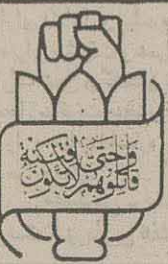 وَقَاتِلُوهُمْ حَتَّىٰ لَا تَكُونَ فِتْنَةٌ